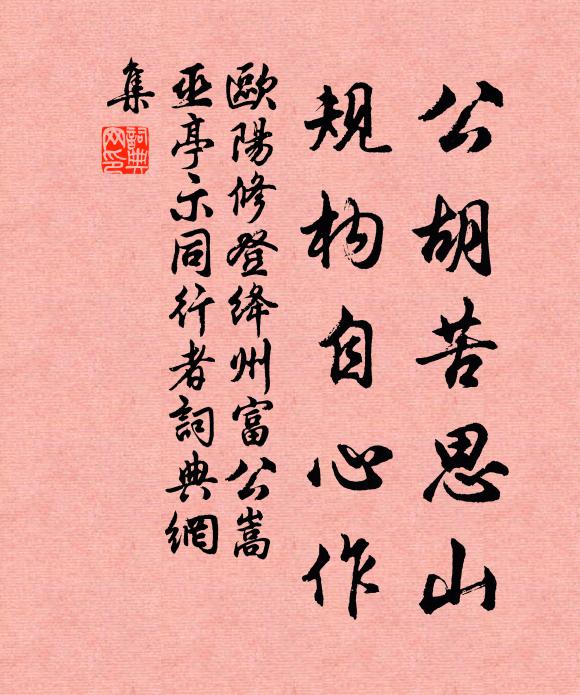 公胡苦思山
規构自心作
歐陽修登绛州富公嵩
巫亭示同行者詞典網
集
詞典網印